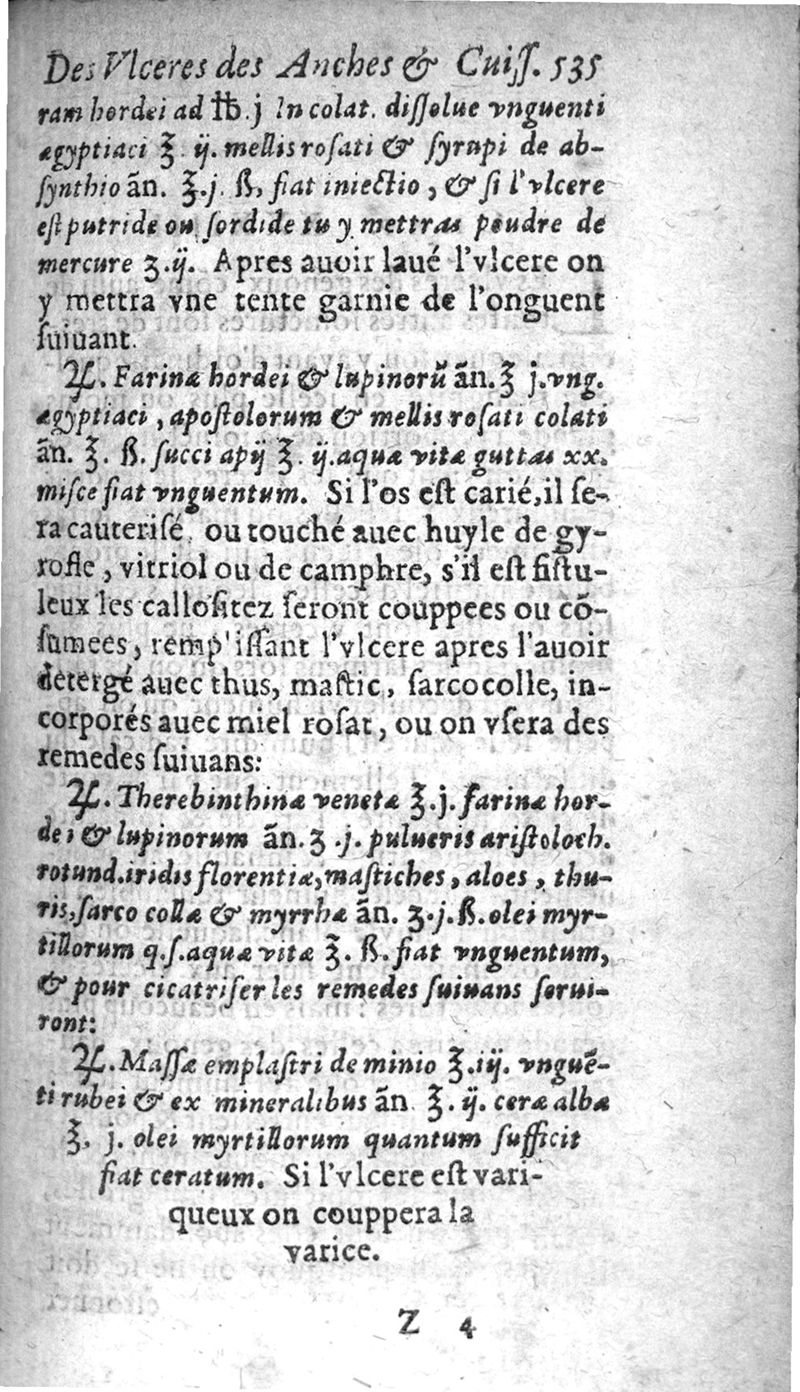 Des Vlceres des Anches & Cuiſſ. 535
ram hordei ad ℔.j In colat. diſſolue vnguenti
ægyptiaci ℥. ij. mellis roſati & ſyrupi de ab-
ſynthio ãn. ℥.j. ß, fiat iniectio, & ſi l'vlcere
eſt putride ou ſordide tu y mettras poudre de
mercure ʒ.ij. Apres auoir laué l'vlcere on
y mettra vne tente garnie de l'onguent
ſuiuant.
♃. Farinæ hordei & lupinorũ ãn.℥ j.vng.
ægyptiaci, apoſtolorum & mellis roſati colati
ãn. ℥. ß. ſucci apij ℥. ij.aquæ vitæ guttas xx.
miſce fiat vnguentum. Si l'os eſt carié,il ſe-
ra cauteriſé, ou touché auec huyle de gy-
rofle, vitriol ou de camphre, s'il eſt fiſtu-
leux les calloſitez ſeront couppees ou cõ-
ſumees, rempliſſant l'vlcere apres l'auoir
detergé auec thus, maſtic, ſarcocolle, in-
corporés auec miel roſat, ou on vſera des
remedes ſuiuans:
♃. Therebinthinæ venetæ ℥.j. farinæ hor-
dei & lupinorum ãn.ʒ.j. pulueris ariſtoloch.
rotund.iridis florentiæ,maſtiches, aloes, thu-
ris,ſarco collæ & myrrhæ ãn. ʒ.j.ß.olei myr-
tillorum q.ſ.aquæ vitæ ℥. ß. fiat vnguentum,
& pour cicatriſer les remedes ſuiuans ſerui-
ront:
♃. Maſſæ emplaſtri de minio ℥.iij. vnguẽ-
ti rubei & ex mineralibus ãn ℥. ij. ceræ albæ
℥. j. olei myrtillorum quantum ſufficit
fiat ceratum. Si l'vlcere eſt vari-
queux on couppera la
varice.
Z 4